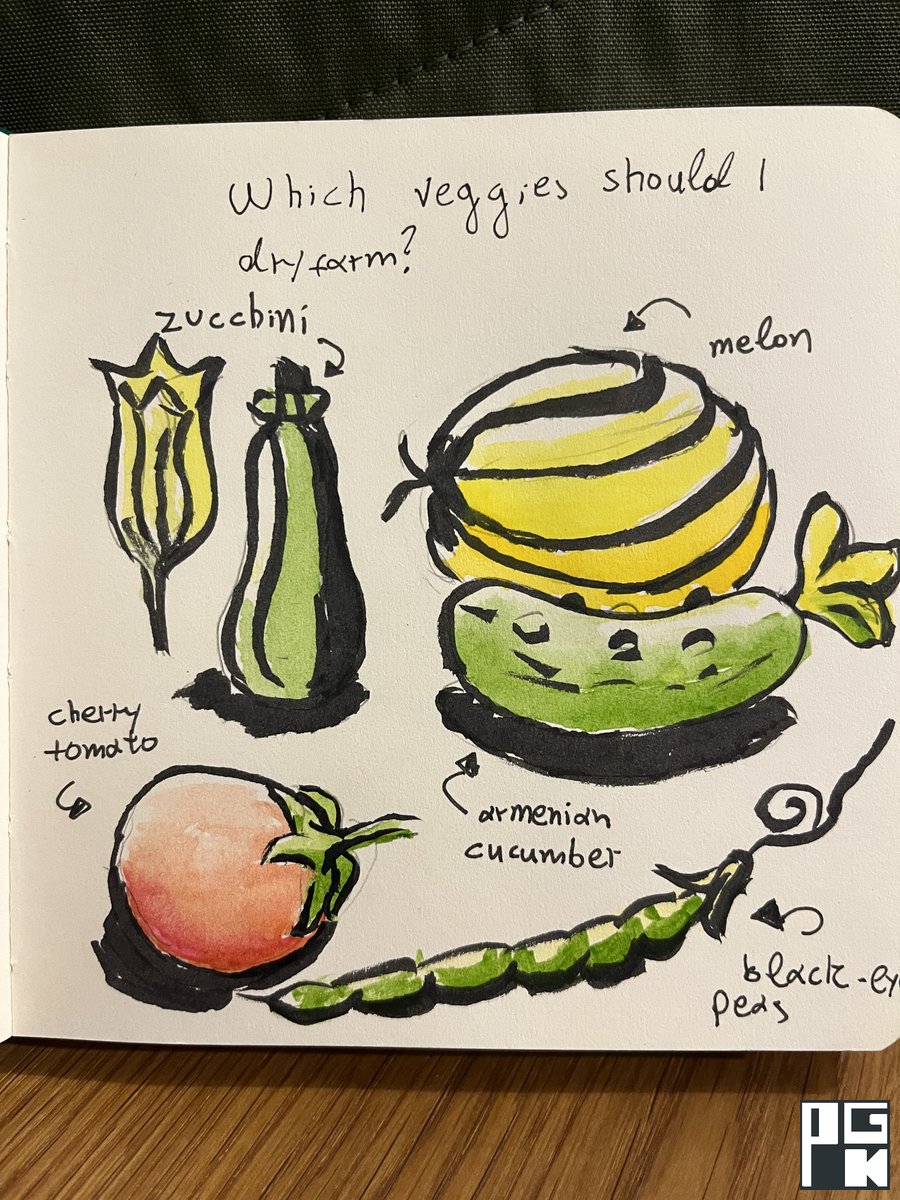 Which veggies should I
dry farm?
zucchini
melon
cherry
tomato
armenian
cucumber
black-ey
peas
PGK